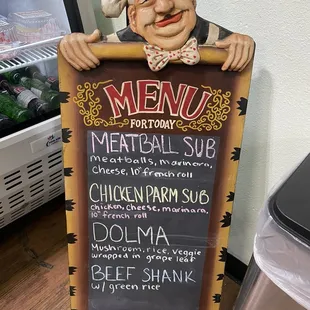 MENU
FOR TODAY
MEATBALL SUB
meatballs, marinara,
cheese, 10" french roll
CHICKEN PARM SUB
chicken, cheese, marinara,
10" french roll
DOLMA
Mushroom, rice, veggie
wrapped in grape leaf
BEEF SHANK
w/ green rice